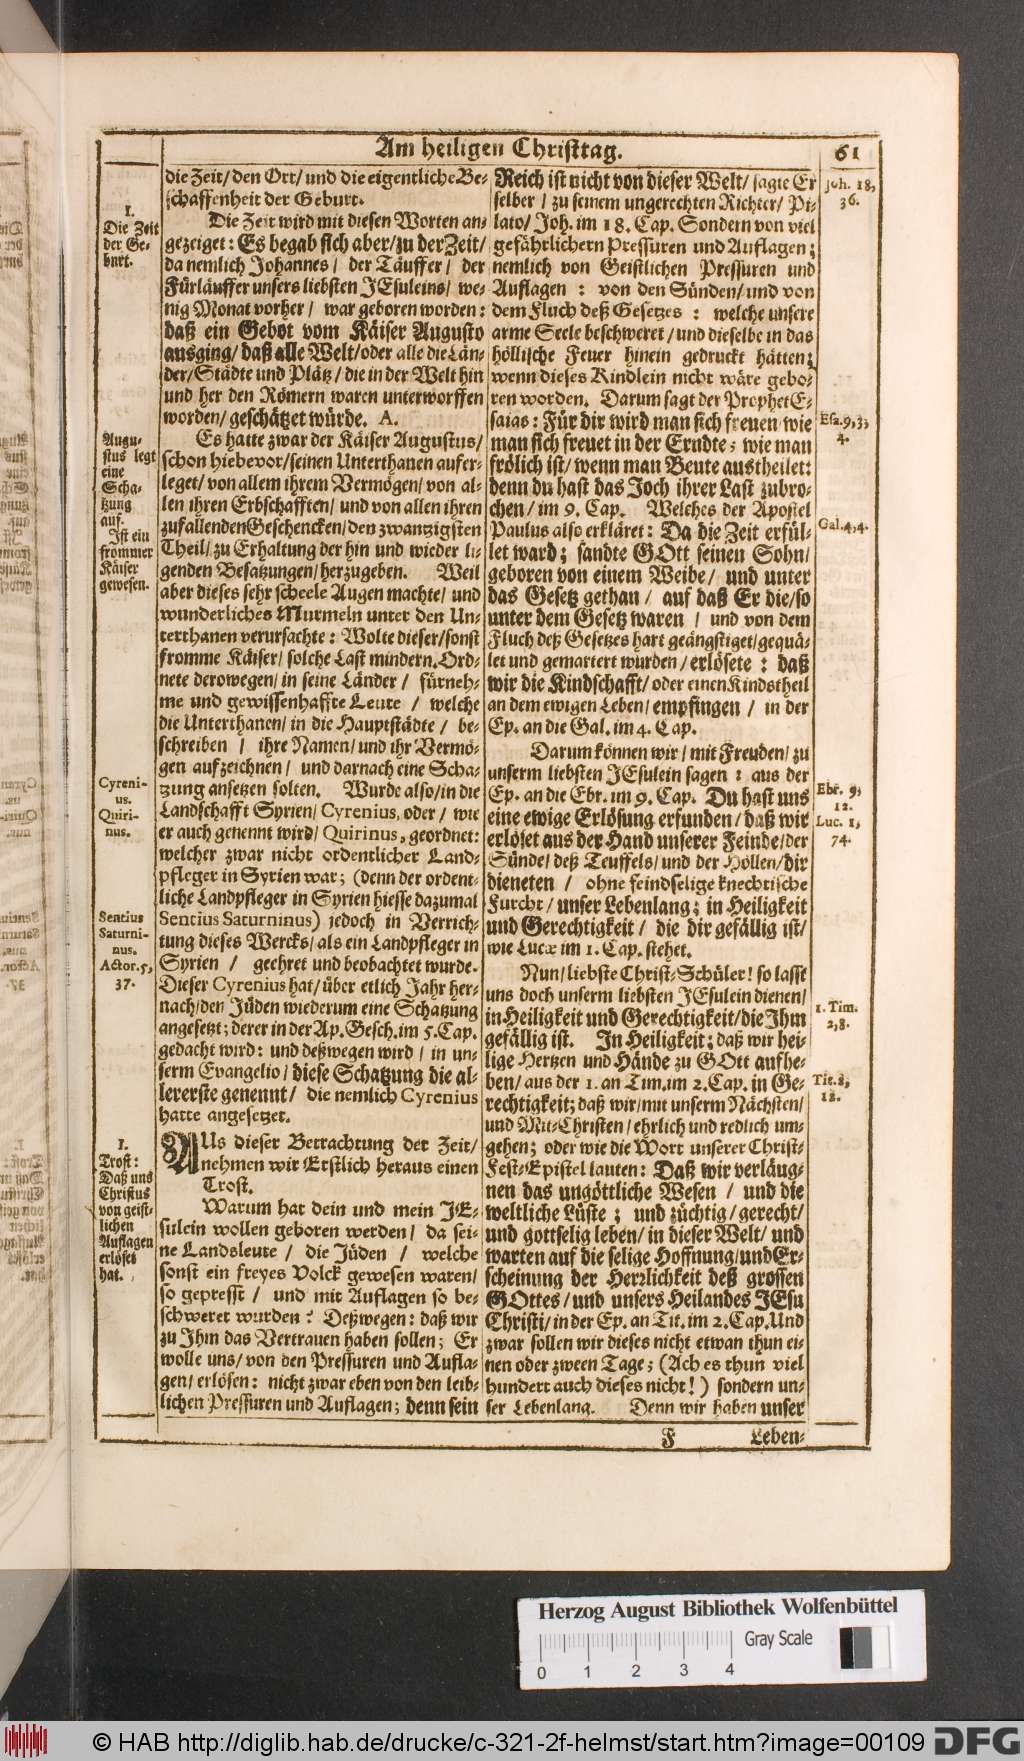 Am heiligen Christtag.
61
1.
Die Zeit
der Ge-
burt.
die Zeit/ den Ort/ und die eigentliche Be-
schaffenheit der Geburt.
Die Zeit wird mit diesen Worten an-
gezeiget: Es begab sich aber/ zu der Zeit/
da nemlich Johannes/ der Täuffer/ der
Fürläuffer unsers liebsten JEsuleins/ we-
nig Monat vorher/ war geboren worden:
daß ein Gebot vom Käiser Augusto
ausging/ daß alle Welt/ oder alle die Län-
der/ Städte und Plätz/ die in der Welt hin
und her den Römern waren unterworffen
worden/ geschätzet würde. A.
Augu-
stus legt
eine
Scha-
tzung
auf.
Ist ein
frommer
Käiser
gewesen.
Es hatte zwar der Käiser Augustus/
schon hiebevor/ seinen Unterthanen aufer-
leget/ von allem ihrem Vermögen/ von al-
len ihren Erbschafften/ und von allen ihren
zufallenden Geschencken/ den zwantzigsten
Theil/ zu Erhaltung der hin und wieder li-
genden Besatzungen/ herzugeben. Weil
aber dieses sehr scheele Augen machte/ und
wunderliches Murmeln unter den Un-
terthanen verursachte: Wolte dieser/ sonst
fromme Käiser/ solche Last mindern. Ord-
nete derowegen/ in seine Länder/ fürneh-
me und gewissenhaffte Leute/ welche
die Unterthanen/ in die Hauptstädte/ be-
schreiben/ ihre Namen/ und ihr Vermö-
gen aufzeichnen/ und darnach eine Scha-
tzung ansetzen solten. Wurde also/ in die
Landschafft Syrien/ Cyrenius, oder/ wie
er auch genennt wird/ Quirinus, geordnet:
welcher zwar nicht ordentlicher Land-
pfleger in Syrien war; (denn der ordent-
liche Landpfleger in Syrien hiesse dazumal
Sentius Saturninus) jedoch in Verrich-
tung dieses Wercks/ als ein Landpfleger in
Syrien/ geehret und beobachtet wurde.
Dieser Cyrenius hat/ über etlich Jahr her-
nach/ den Jüden wiederum eine Schatzung
angesetzt; derer in der Ap. Gesch. im 5. Cap.
gedacht wird: und deßwegen wird/ in un-
serm Evangelio/ diese Schatzung die al-
lererste genennt/ die nemlich Cyrenius
hatte angesetzet.
Cyreni-
us.
Quiri-
nus.
Sentius
Saturni-
nus.
Actor. 5,
37.
1.
Trost:
Daß uns
Christus
von geist-
lichen
Auflagen
erlöset
hat.
AUs dieser Betrachtung der Zeit/
nehmen wir Erstlich heraus einen
Trost.
Warum hat dein und mein JE-
sulein wollen geboren werden/ da sei-
ne Landsleute/ die Jüden/ welche
sonst ein freyes Volck gewesen waren/
so gepresst/ und mit Auflagen so be-
schweret wurden? Deßwegen: daß wir
zu Ihm das Vertrauen haben sollen; Er
wolle uns/ von den Pressuren und Aufla-
gen/ erlösen: nicht zwar eben von den leib-
lichen Pressuren und Auflagen; denn sein
Reich ist nicht von dieser Welt/ sagte Er
selber/ zu seinem ungerechten Richter/ Pi-
lato/ Joh. im 18. Cap. Sondern von viel
gefährlichern Pressuren und Auflagen;
nemlich von Geistlichen Pressuren und
Auflagen: von den Sünden/ und von
dem Fluch deß Gesetzes: welche unsere
arme Seele beschweret/ und dieselbe in das
höllische Feuer hinein gedruckt hätten;
wenn dieses Kindlein nicht wäre gebo-
ren worden. Darum sagt der Prophet E-
saias: Für dir wird man sich freuen/ wie
man sich freuet in der Erndte; wie man
frölich ist/ wenn man Beute austheilet:
denn du hast das Joch ihrer Last zubro-
chen/ im 9. Cap. Welches der Apostel
Paulus also erkläret: Da die Zeit erfül-
let ward; sandte GOtt seinen Sohn/
geboren von einem Weibe/ und unter
das Gesetz gethan/ auf daß Er die/ so
unter dem Gesetz waren/ und von dem
Fluch deß Gesetzes hart geängstiget/ gequä-
let und gemartert wurden/ erlösete: daß
wir die Kindschafft/ oder einen Kindstheil
an dem ewigen Leben/ empfingen/ in der
Ep. an die Gal. im 4. Cap.
Darum können wir/ mit Freuden/ zu
unserm liebsten JEsulein sagen: aus der
Ep. an die Ebr. im 9. Cap. Du hast uns
eine ewige Erlösung erfunden/ daß wir
erlöset aus der Hand unserer Feinde/ der
Sünde/ deß Teuffels/ und der Höllen/ dir
dieneten/ ohne feindselige knechtische
Furcht/ unser Lebenlang; in Heiligkeit
und Gerechtigkeit/ die dir gefällig ist/
wie Lucæ im 1. Cap. stehet.
Nun/ liebste Christ-Schüler! so lasst
uns doch unserm liebsten JEsulein dienen/
in Heiligkeit und Gerechtigkeit/ die Ihm
gefällig ist. In Heiligkeit; daß wir hei-
lige Hertzen und Hände zu GOtt aufhe-
ben/ aus der 1. an Tim. im 2. Cap. in Ge-
rechtigkeit; daß wir/ mit unserm Nächsten/
und Mit-Christen/ ehrlich und redlich um-
gehen; oder wie die Wort unserer Christ-
Fest-Epistel lauten: Daß wir verläug-
nen das ungöttliche Wesen/ und die
weltliche Lüste; und züchtig/ gerecht/
und gottselig leben/ in dieser Welt/ und
warten auf die selige Hoffnung/ und Er-
scheinung der Herrlichkeit deß grossen
GOttes/ und unsers Heilandes JEsu
Christi/ in der Ep. an Tit. im 2. Cap. Und
zwar sollen wir dieses nicht etwan thun ei-
nen oder zween Tage; (Ach es thun viel
hundert auch dieses nicht!) sondern un-
ser Lebenlang. Denn wir haben unser
Joh. 18,
36.
Esa. 9, 3,
4.
Gal. 4, 4.
Ebr. 9,
12.
Luc. 1,
74.
1. Tim.
2, 8.
Tit. 2,
12.
F
Leben-
Herzog August Bibliothek Wolfenbüttel
Gray Scale
0 1 2 3 4
© HAB http://diglib.hab.de/drucke/c-321-2f-helmst/start.htm?image=00109
DFG